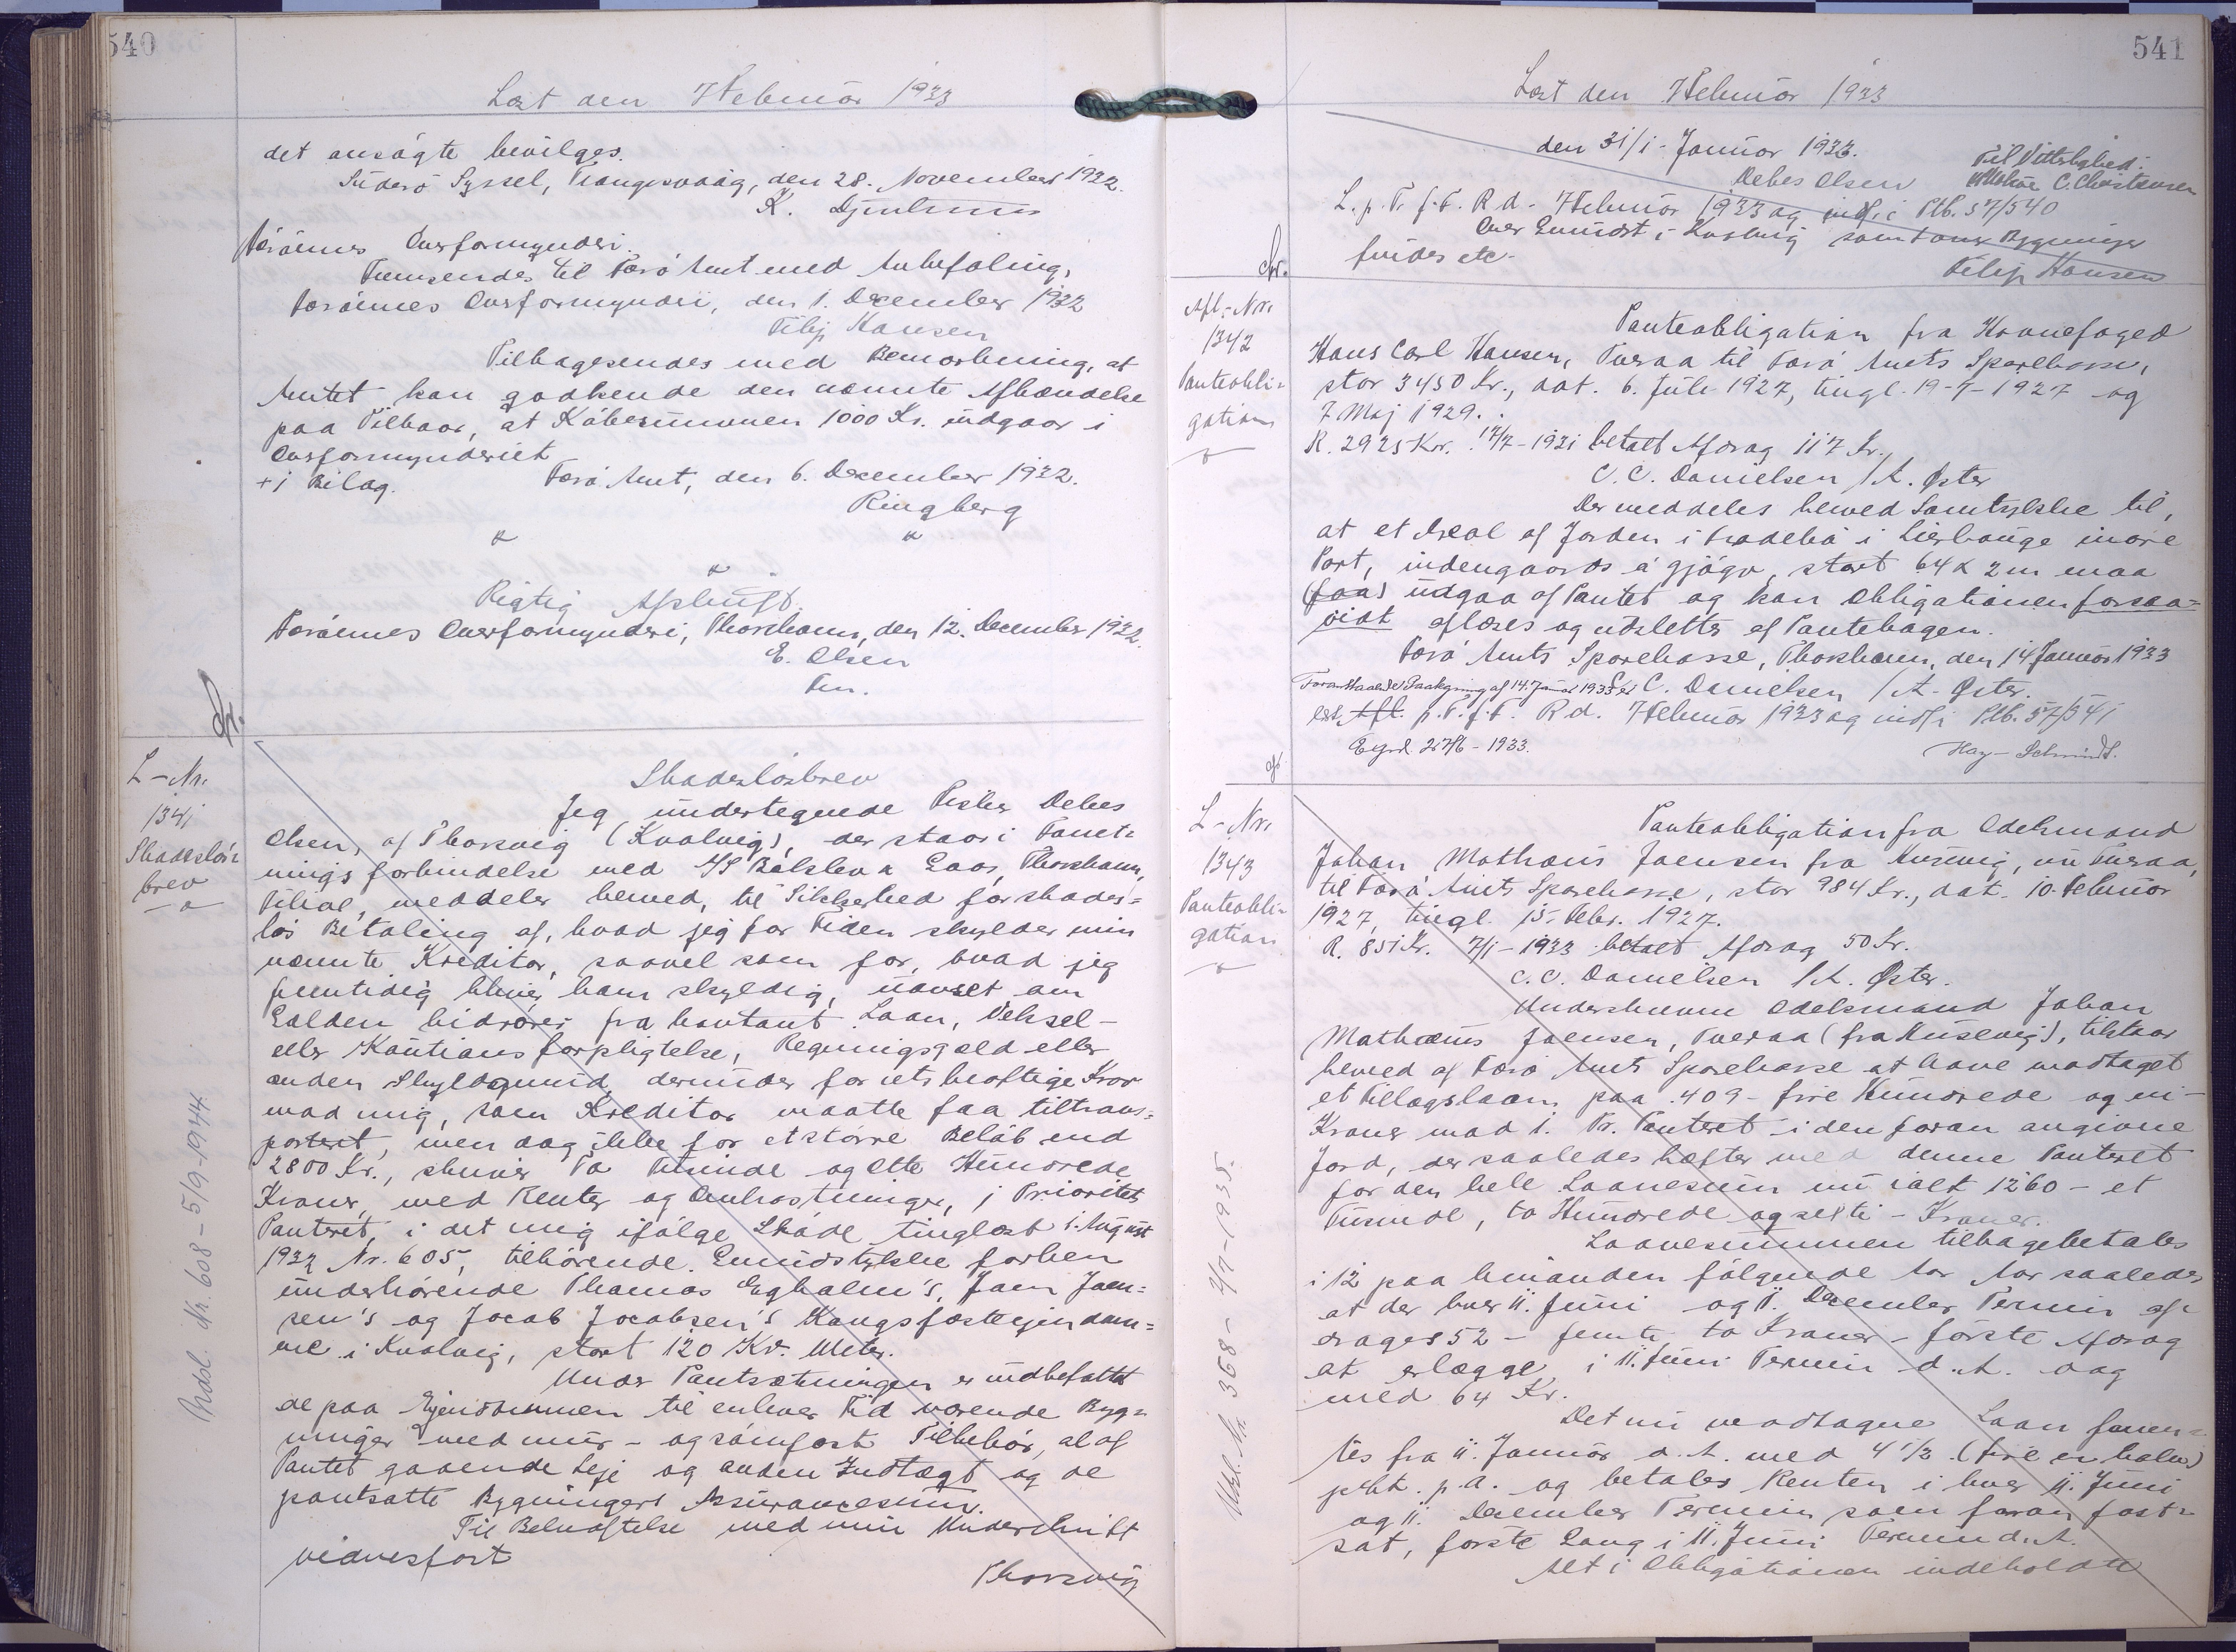 540
Læst den 7 Februar 1933
det ansøgte bevilges.
Suderø Syssel, Trangisvaag, den 28. November 1932.
K. Djurhuus
Færøernes Overformynderi.
Fremsendes til Færø Amt med Anbefaling,
Færøernes Overformynderi, den 1. December 1932
Filip Hansen
Tilbagesendes med Bemærkning, at
Amtet kan godkende den nævnte Afhændelse
paa Vilkaar, at Købesummen 1000 Kr. indgaar i
Overformynderiet
+ 1 Bilag. Færø Amt, den 6. December 1932.
Ringberg
Rigtig Afskrift.
Færøernes Overformynderi, Thorshavn, den 12. December 1932.
E. Olsen
Fm.
L-Nr.
1341
Skadesløs=
brev
Skadesløsbrev
Jeg undertegnede Fisker Debes
Olsen, af Thorsvig (Kvalvig), der staar i Forret=
nings forbindelse med A/S Balslev & Laas, Thorshavn,
Filial, meddeler herved, til Sikkerhed for skades=
løs Betaling af, hvad jeg for Tiden skylder min
nævnte Kreditor, saavel som for, hvad jeg
fremtidig bliver ham skyldig, uanset om
Gælden hidrører fra kontant Laan, Veksel-
eller Kautionsforpligtelse, Regningsgæld eller
anden Skyldgrund, derunder for retskraftige Krav
mod mig, som Kreditor maatte faa tiltrans=
porteret, men dog ikke for et større Beløb end
2800 Kr., skriver To Tusinde og Otte Hundrede
Kroner, med Renter og Omkostninger, 1 Prioritets
Panteret, i det mig ifølge Skøde tinglæst 1. August
1932 Nr. 605, tilhørende Grundstykke forhen
underhørende Thomas Egholm's, Joen Joen=
sen's og Jacob Jacobsen's Kongsfæsteejendom=
me i Kvalvig, stort 120 Kv. Meter.
Under Pantsætningen er indbefattet
de paa Ejendommen til enhver Tid værende Byg=
ninger med mur- og sømfast Tilbehør, al af
Pantet gaaende Leje og anden Indtægt og de
pantsatte Bygningers Assurancesum.
Til Bekræftelse med min Underskrift
vidnesfast
Thorsvig
Nr. 608 - 5/9-1944
541
Læst den 7 Februar 1933
den 31/1- Januar 1933.
Debes Olsen
Til Vitterlighed:
C. Christensen
L. p. T. f. F. R d. 7 Februar 1933 og indf. i Ptb. 57/540
Over Grundst. i Kvalvig samt over Bygninger
findes etc.
Filip Hansen
Afl.-Nr.
1342
Panteobli=
gation
Panteobligation fra Kronefoged
Hans Carl Hansen, Tveraa til Færø Amts Sparekasse,
stor 3450 Kr., dat. 6. Juli 1927, tingl. 19-7-1927 og
7 Maj 1929.
R. 2925 Kr. 17/7-1931 betalt Afdrag 117 Kr.
C. C. Danielsen /A. Øster
Der meddeles herved Samtykke til,
at et Areal af Jorden i Fradebø i Lierhauge indre
Part, indengaards á gjógv, stort 64 x 2 m maa
(faa) udgaa af Pantet og kan Obligationen forsaa=
vidt aflæses og udslettes af Pantebogen.
Færø Amts Sparekasse, Thorshavn, den 14 Januar 1933
C. C. Danielsen /A. Øster.
Foranstaaende Paategning af 14. Januar 1933 er
læst Afl. p. T. f. F. R d. 7 Februar 1933 og indf i Ptb. 57/541
27/6-1933.
Hay-Schmidt.
L-Nr.
1343
Panteobli=
gation
Panteobligation fra Odelsmand
Johan Mathæus Joensen fra Husevig, nu Tveraa,
til Færø Amts Sparekasse, stor 984 Kr., dat. 10. Februar
1927, tingl. 15. Febr. 1927.
R. 851 Kr. 7/1-1933 betalt Afdrag 50 Kr.
C. C. Danielsen /A. Øster.
Underskrevne Odelsmand Johan
Mathæus Joensen, Tveraa (fra Husevig), tilstaar
herved af Færø Amts Sparekasse at have modtaget
et Tillægslaan paa 409 - fire Hundrede og ni -
Kroner mod 1. Pr. Panteret i den foran angivne
Jord, der saaledes hæfter med denne Panteret
for den hele Laanesum nu ialt 1260 - et
Tusinde, to Hundrede og seksti - Kroner.
Laanesummen tilbagebetales
i 12 paa hinanden følgende Aar saaledes
at der hver 11. Juni og 11. December Termin af=
drages 52 - femti to Kroner - første Afdrag
at erlægge i 11. Juni Termin d. A. dog
med 64 Kr.
Det nu modtagne Laan forren=
tes fra 11. Januar d. A. med 4 1/2 (fire en halv)
pCt. p. A. og betales Renten i hver 11. Juni
og 11. December Termin som foran fast=
sat, første Gang i 11. Juni Termin d. A.
Alt i Obligationen indeholdte
Udsl. Nr. 368 - 2/7-1935.